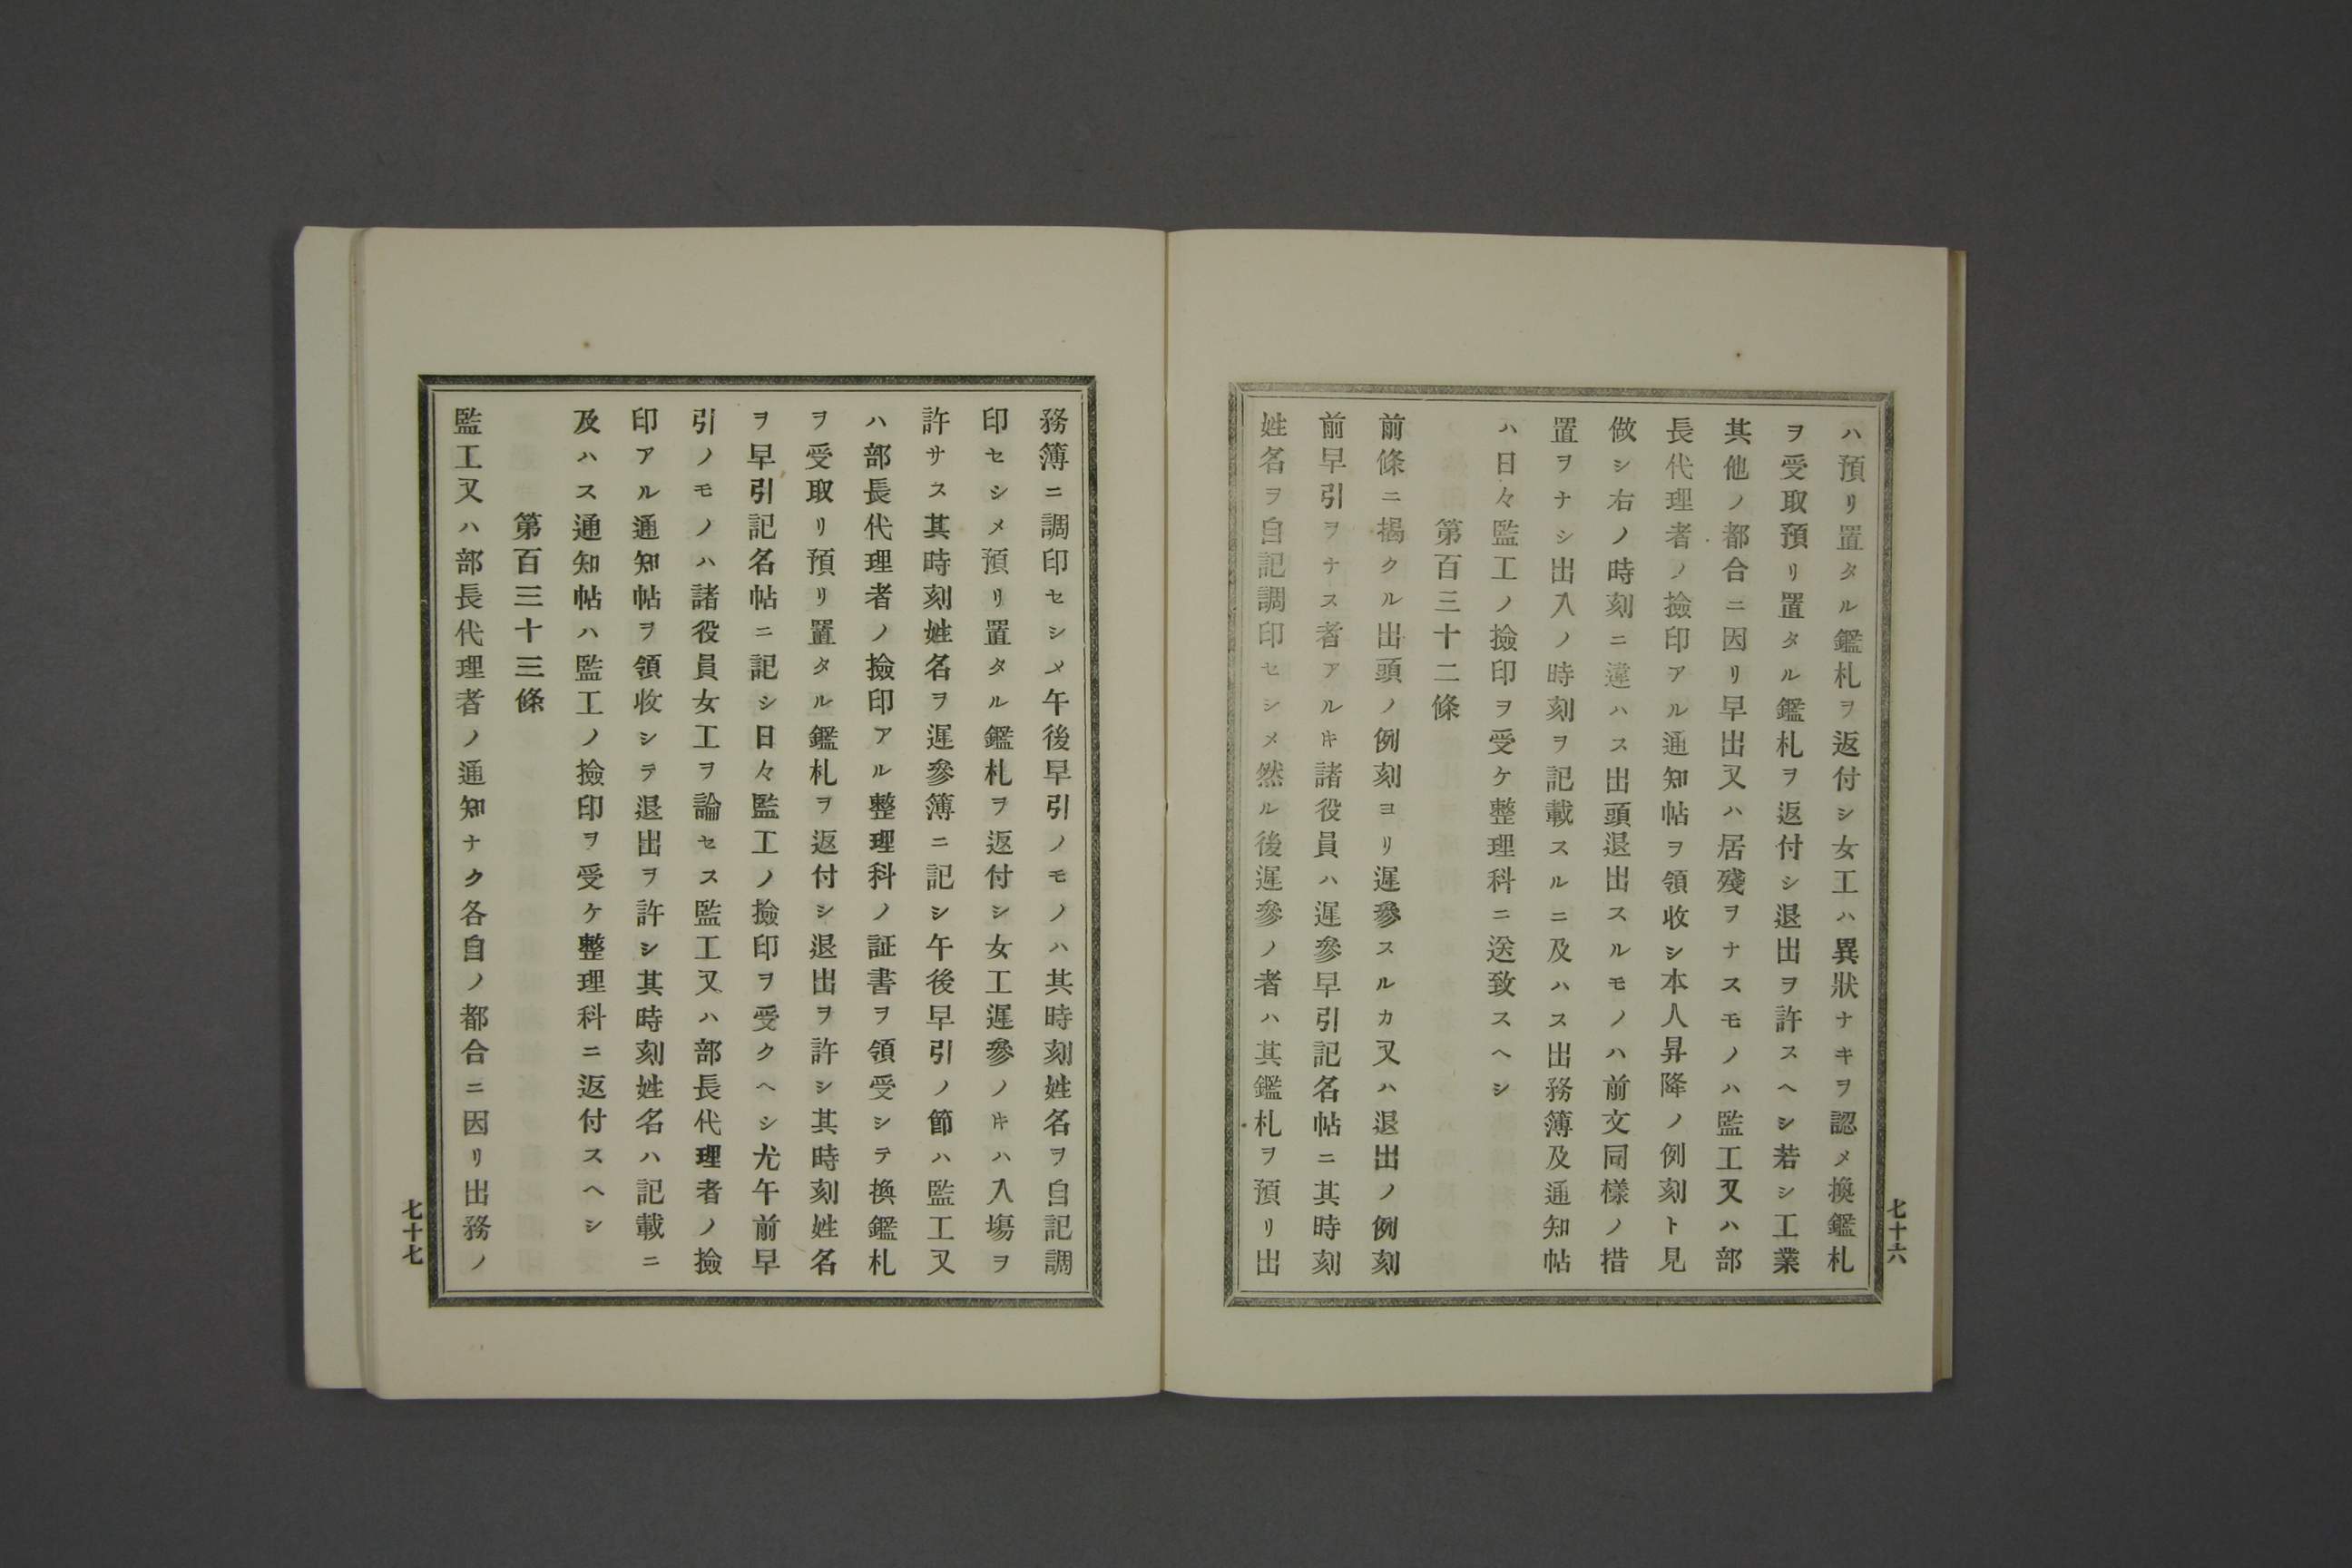 ハ預リ置タル鑑札ヲ返付シ女工ハ異狀ナキヲ認メ換鑑札
ヲ受取預リ置タル鑑札ヲ返付シ退出ヲ許スヘシ若シ工業
其他ノ都合ニ因リ早出又ハ居殘ヲナスモノハ監工又ハ部
長代理者ノ撿印アル通知帖ヲ領收シ本人昇降ノ例刻ト見
做シ右ノ時刻ニ違ハス出頭退出スルモノハ前文同樣ノ措
置ヲナシ出入ノ時刻ヲ記載スルニ及ハス出務簿及通知帖
ハ日々監工ノ撿印ヲ受ケ整理科ニ送致スヘシ
第百三十二條
前條ニ揭クル出頭ノ例刻ヨリ遲參スルカ又ハ退出ノ例刻
前早引ヲナス者アルキ諸役員ハ遲參早引記名帖ニ其時刻
姓名ヲ自記調印セシメ然ル後遲參ノ者ハ其鑑札ヲ預リ出
七十六
務簿ニ調印セシメ午後早引ノモノハ其時刻姓名ヲ自記調
印セシメ預リ置タル鑑札ヲ返付シ女工遲參ノキハ入塲ヲ
許サス其時刻姓名ヲ遲參簿ニ記シ午後早引ノ節ハ監工又
ハ部長代理者ノ撿印アル整理科ノ証書ヲ領受シテ換鑑札
ヲ受取リ預リ置タル鑑札ヲ返付シ退出ヲ許シ其時刻姓名
ヲ早引記名帖ニ記シ日々監工ノ撿印ヲ受クヘシ尤午前早
引ノモノハ諸役員女工ヲ論セス監工又ハ部長代理者ノ撿
印アル通知帖ヲ領收シテ退出ヲ許シ其時刻姓名ハ記載ニ
及ハス通知帖ハ監工ノ撿印ヲ受ケ整理科ニ返付スヘシ
第百三十三條
監工又ハ部長代理者ノ通知ナク各自ノ都合ニ因リ出務ノ
七十七